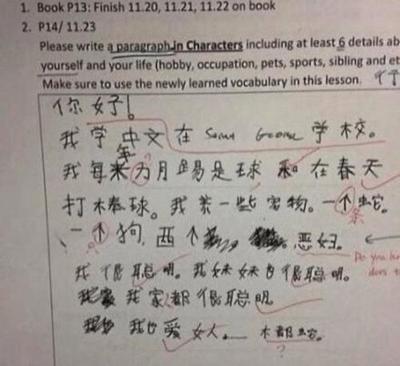 1. Book P13: Finish 11.20, 11.21, 11.22 on book
2. P14/ 11.23
Please write a paragraph in Characters including at least 6 details ab
yourself and your life (hobby, occupation, pets, sports, sibling and et
Make sure to use the newly learned vocabulary in this lesson.
你好!
我学中文在 学校。
年
我每 月踢是球 和在春天
打棒球。我养一些宠物。一个蛇。
条
一个狗, 西个 恶妇。
我很聪明。我妹妹也很聪明。
我家都很聪明
我也爱女人。 木都蛇。
?